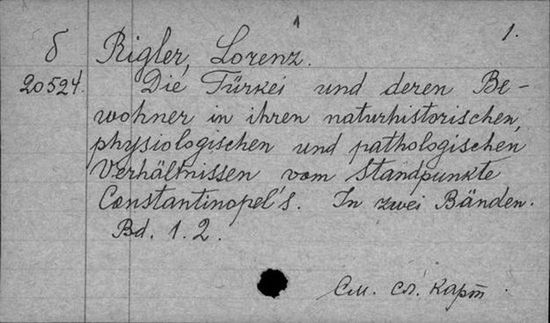 1
1.
δ Rigler, Lorenz.
20524. Die Türkei und deren Be-
wohner in ihren naturhistorischen,
physiologischen und pathologischen
Verhältnissen vom Standpunkte
Constantinopel's. In zwei Bänden.
Bd. 1. 2.
См. сл. карт